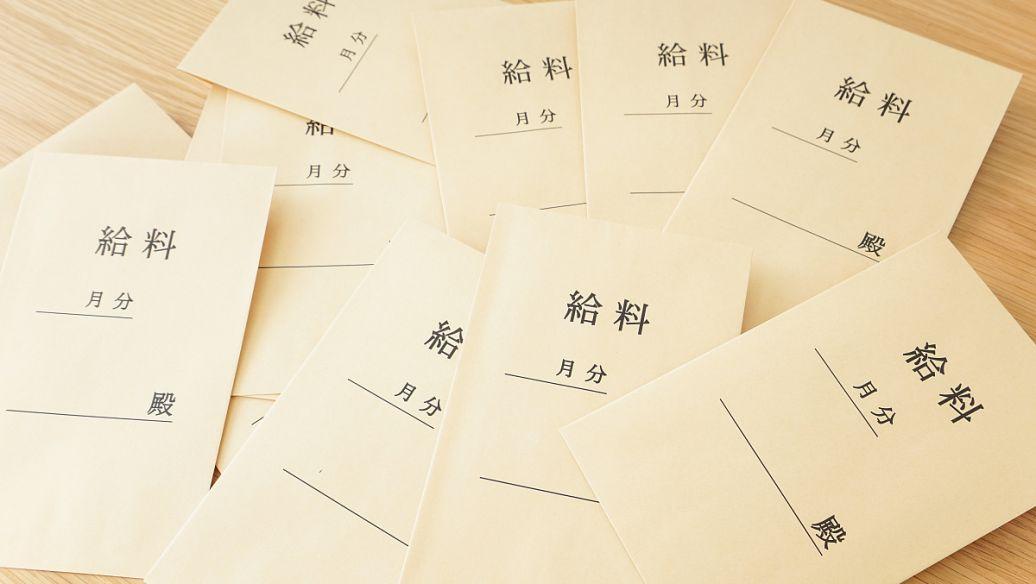 給料
月分
給料
月分
給料
月分
給料
月分
殿
給
月分
給料
月分
殿
給
月分
給料
月分
給料
月分
殿